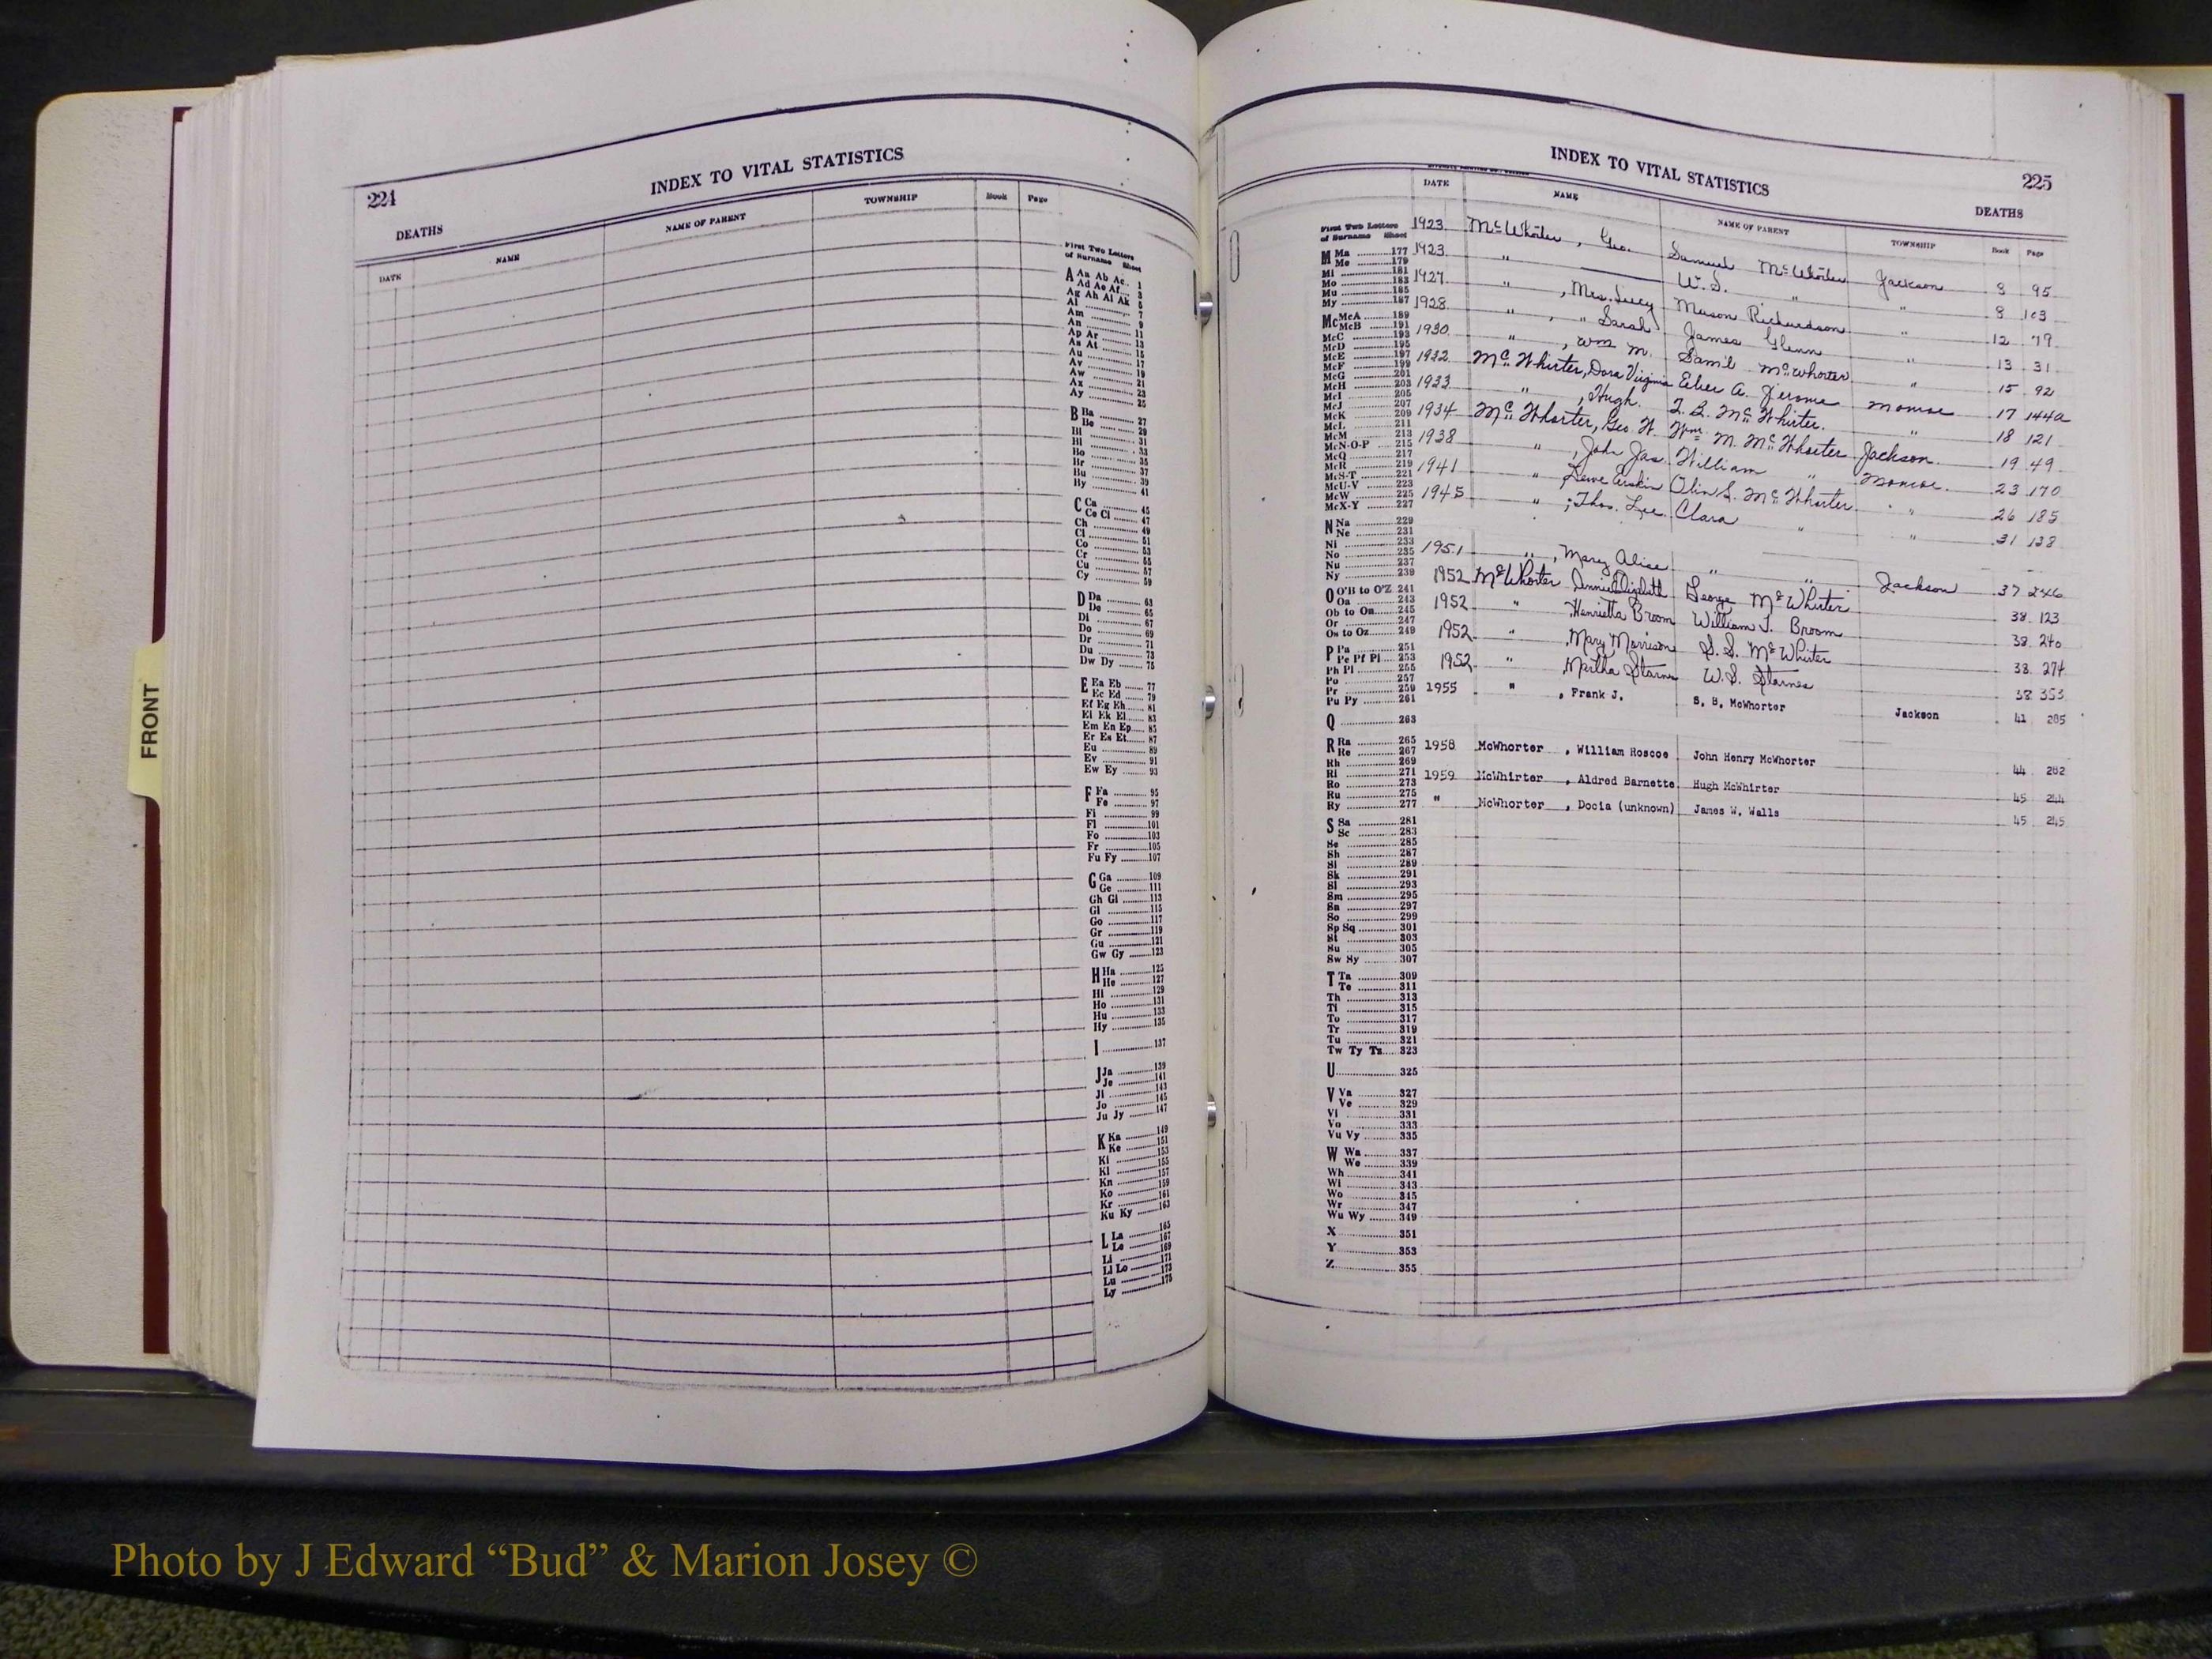 224
INDEX TO VITAL STATISTICS
DEATHS
DATE NAME NAME OF PARENT TOWNSHIP Book Page
First Two Letters
of Surname Sheet
A Aa Ab Ac 1
Ad Ae Af 3
Ag Ah Ai Ak 5
Al 7
Am 9
An 11
Ap Ar 13
As At 15
Au 17
Av 19
Aw 21
Ax 23
Ay 25
B Ba 27
Be 29
Bi 31
Bl 33
Bo 35
Br 37
Bu 39
By 41
C Ca 45
Ce Ci 47
Ch 49
Cl 51
Co 53
Cr 55
Cu 57
Cy 59
D Da 63
De 65
Di 67
Do 69
Dr 71
Du 73
Dw Dy 75
E Ea Eb 77
Ec Ed 79
Ef Eg Eh 81
Ei Ek El 83
Em En Ep 85
Er Es Et 87
Eu 89
Ev 91
Ew Ey 93
F Fa 95
Fe 97
Fi 99
Fl 101
Fo 103
Fr 105
Fu Fy 107
G Ga 109
Ge 111
Gh Gi 113
Gl 115
Go 117
Gr 119
Gu 121
Gw Gy 123
H Ha 125
He 127
Hi 129
Ho 131
Hu 133
Hy 135
I 137
J Ja 139
Je 141
Ji 143
Jo 145
Ju Jy 147
K Ka 149
Ke 151
Ki 153
Kl 155
Kn 157
Ko 159
Kr 161
Ku Ky 163
L La 165
Le 167
Li 169
Ll Lo 171
Lu 173
Ly 175
INDEX TO VITAL STATISTICS
225
DEATHS
DATE NAME NAME OF PARENT TOWNSHIP Book Page
1923 McWhorter, Geo. Samuel McWhorter Jackson 8 95
1923 " W. S. " " 8 103
1927 " , Mrs. Lucy Mason Richardson " 12 79
1928 " , " Sarah James Glenn " 13 31
1930 " , Wm M. Sam'l McWhorter " 15 92
1932 McWhirter, Dora Virginia A. Jerome Monroe 17 144a
1933 " , Hugh. McWhirter. " 18 121
1934 McWhorter, Geo. W. Wm. M. McWhorter Jackson 19 49
1938 " , John Jas. William " Monroe 23 170
1941 " Olin S. McWhorter " 26 185
1945 " , Thos. Lee Clara " " 31 138
1951 " , Mary Alice " " Jackson 37 246
1952 McWhorter George McWhirter 38 123
1952 " Henrietta Broom William T. Broom 38 240
1952 " Mary Morrison S. S. McWhirter 38 274
1952 " Martha Starnes W. S. Starnes 38 353
1955 " , Frank J. S. B. McWhorter Jackson 41 285
1958 McWhorter , William Roscoe John Henry McWhorter 44 282
1959 McWhirter , Aldred Barnette Hugh McWhirter 45 244
" McWhorter , Docia (unknown) James W. Walls 45 245
First Two Letters
of Surname Sheet
M Ma 177
Me 179
Mi 181
Mo 183
Mu 185
My 187
Mc McA 189
McB 191
McC 193
McD 195
McE 197
McF 199
McG 201
McH 203
McI 205
McJ 207
McK 209
McL 211
McM 213
McN-O-P 215
McQ 217
McR 219
McS-T 221
McU-V 223
McW 225
McX-Y 227
N Na 229
Ne 231
Ni 233
No 235
Nu 237
Ny 239
O O'B to O'Z 241
Oa 243
Ob to On 245
Or 247
Os to Oz 249
P Pa 251
Pe Pf Pl 253
Ph Pi 255
Po 257
Pr 259
Pu Py 261
Q 263
R Ra 265
Re 267
Rh 269
Ri 271
Ro 273
Ru 275
Ry 277
S Sa 281
Sc 283
Se 285
Sh 287
Si 289
Sk 291
Sl 293
Sm 295
Sn 297
So 299
Sp Sq 301
St 303
Su 305
Sw Sy 307
T Ta 309
Te 311
Th 313
Ti 315
To 317
Tr 319
Tu 321
Tw Ty Tz 323
U 325
V Va 327
Ve 329
Vi 331
Vo 333
Vu Vy 335
W Wa 337
We 339
Wh 341
Wi 343
Wo 345
Wr 347
Wu Wy 349
X 351
Y 353
Z 355
FRONT
Photo by J Edward “Bud” & Marion Josey ©